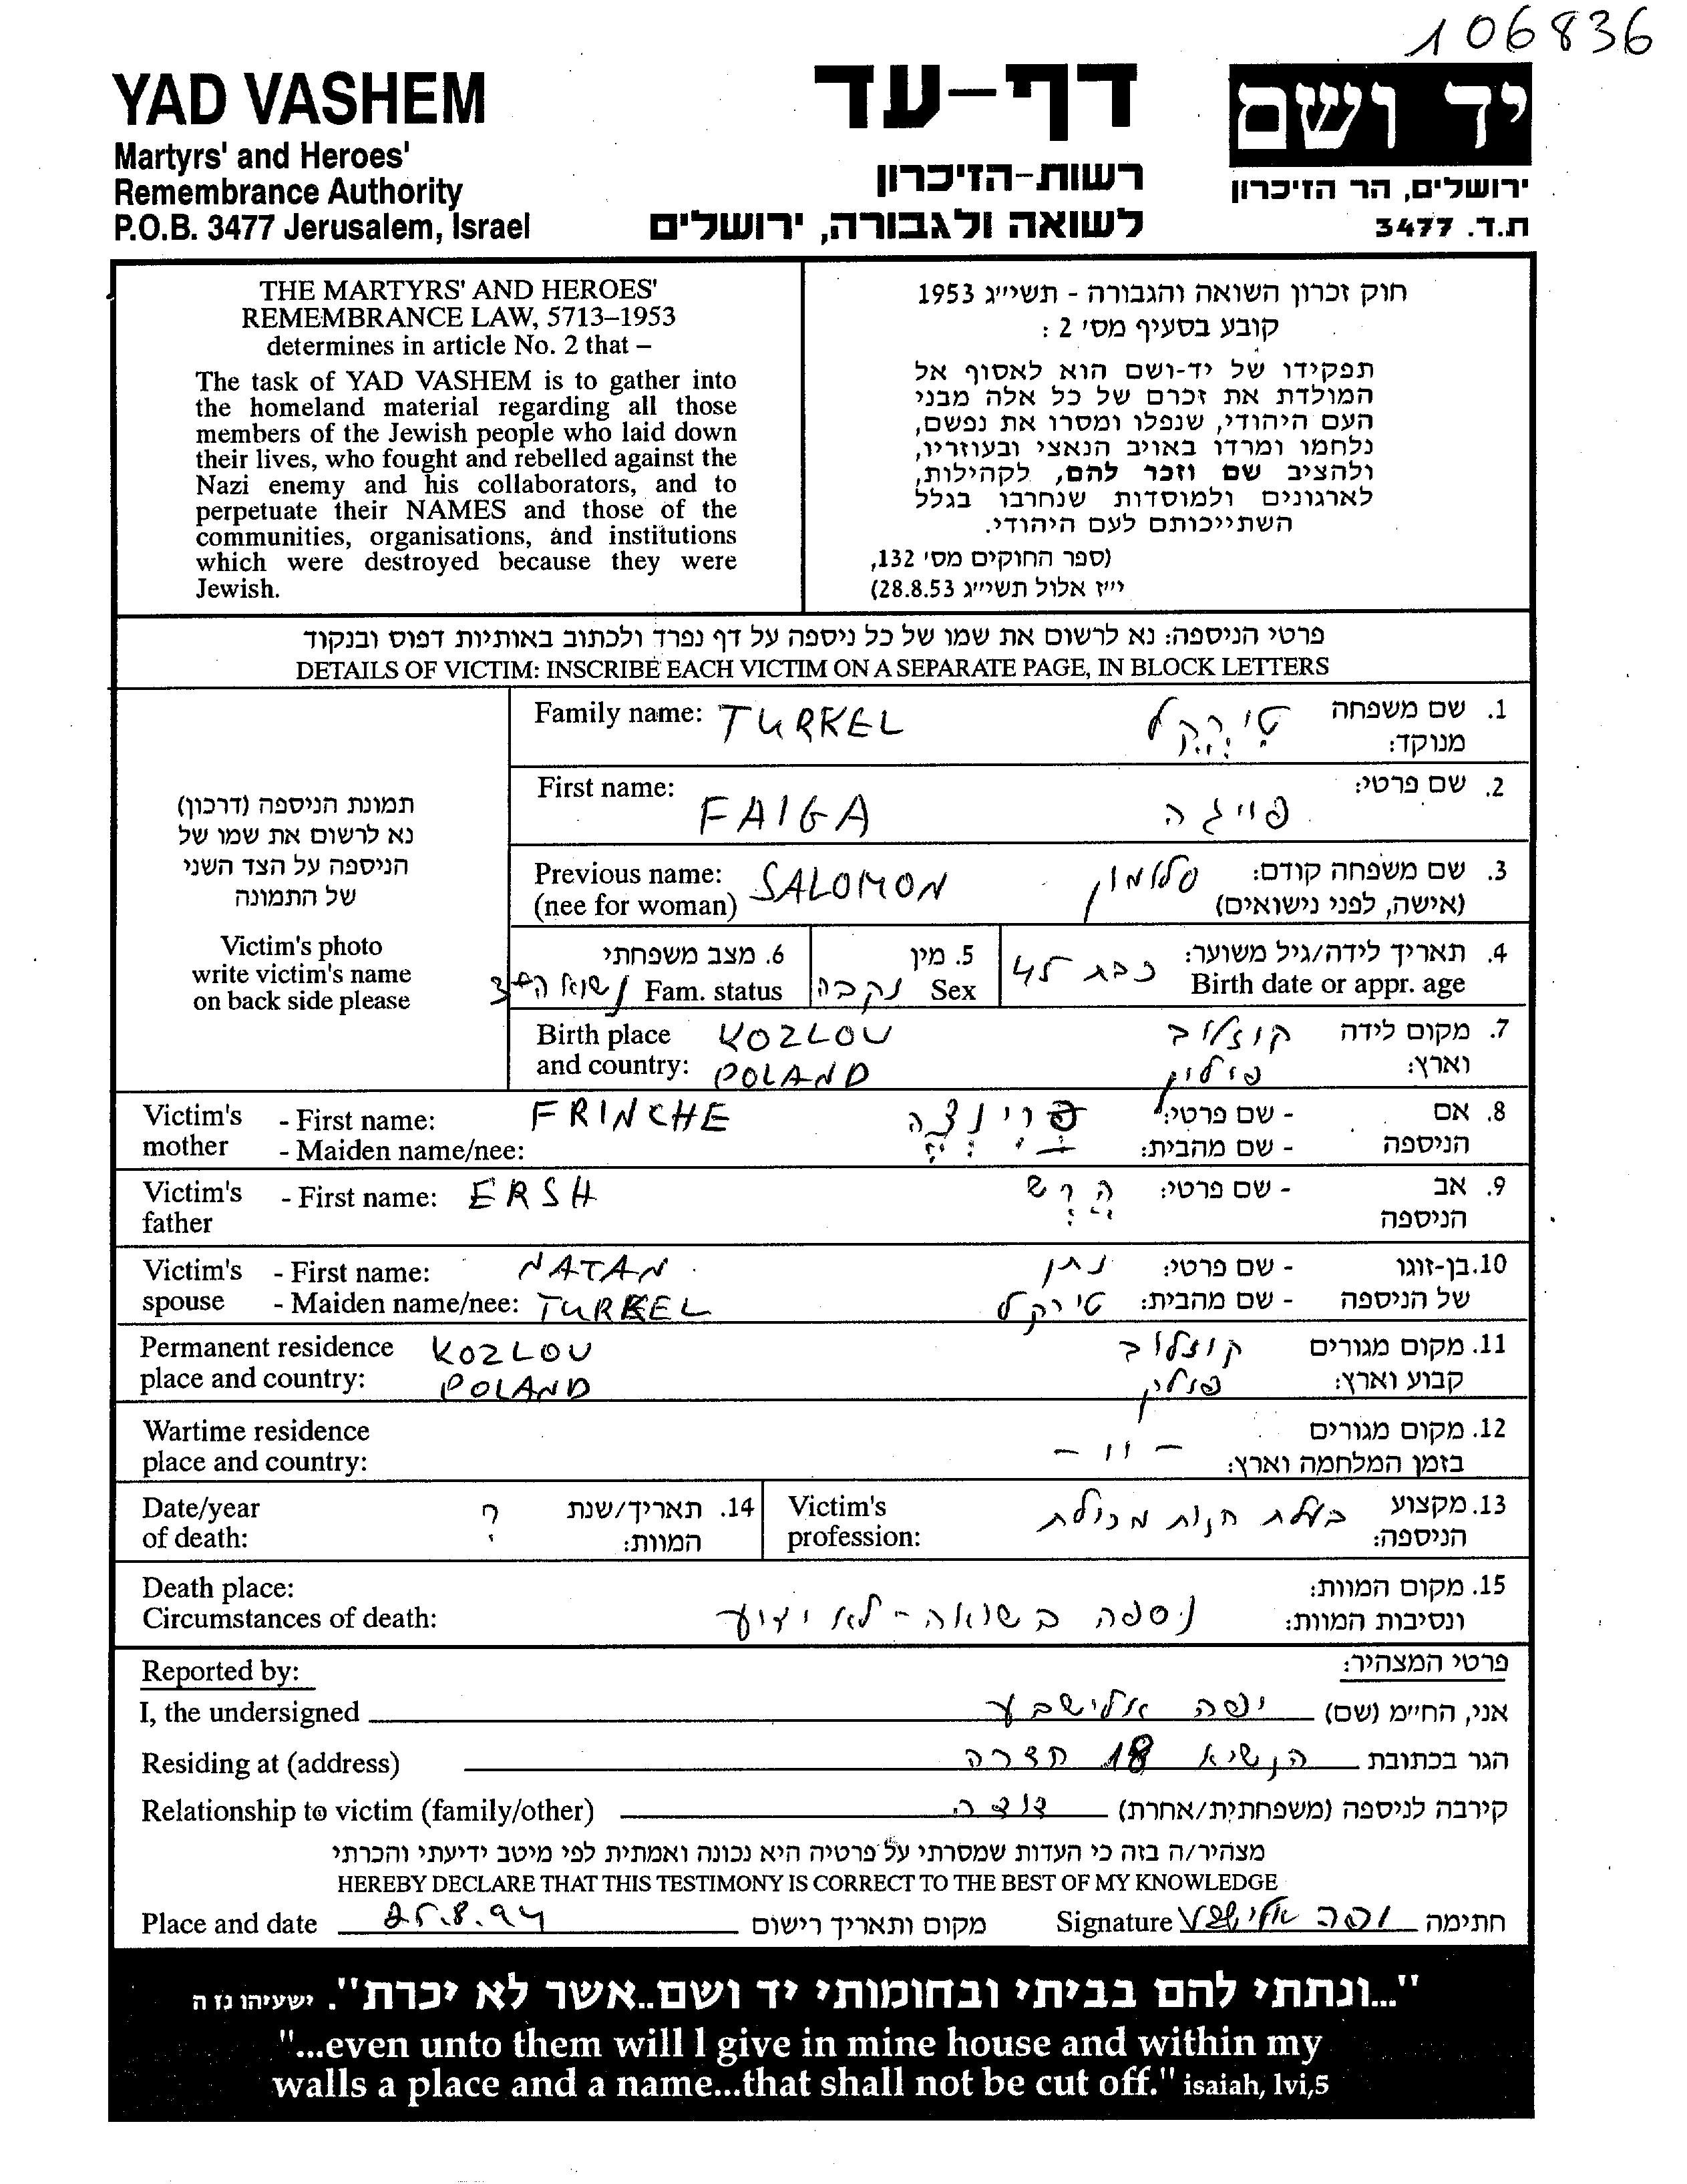 106836
YAD VASHEM
Martyrs' and Heroes'
Remembrance Authority
P.O.B. 3477 Jerusalem, Israel
דף-עד
רשות-הזיכרון
לשואה ולגבורה, ירושלים
יד ושם
ירושלים, הר הזיכרון
ת.ד. 3477
THE MARTYRS' AND HEROES'
REMEMBRANCE LAW, 5713–1953
determines in article No. 2 that –
The task of YAD VASHEM is to gather into
the homeland material regarding all those
members of the Jewish people who laid down
their lives, who fought and rebelled against the
Nazi enemy and his collaborators, and to
perpetuate their NAMES and those of the
communities, organisations, and institutions
which were destroyed because they were
Jewish.
חוק זכרון השואה והגבורה - תשי״ג 1953
קובע בסעיף מס׳ 2 :
תפקידו של יד-ושם הוא לאסוף אל
המולדת את זכרם של כל אלה מבני
העם היהודי, שנפלו ומסרו את נפשם,
נלחמו ומרדו באויב הנאצי ובעוזריו,
ולהציב שם וזכר להם, לקהילות,
לארגונים ולמוסדות שנחרבו בגלל
השתייכותם לעם היהודי.
(ספר החוקים מס׳ 132,
י״ז אלול תשי״ג 28.8.53)
פרטי הניספה: נא לרשום את שמו של כל ניספה על דף נפרד ולכתוב באותיות דפוס ובנקוד
DETAILS OF VICTIM: INSCRIBE EACH VICTIM ON A SEPARATE PAGE, IN BLOCK LETTERS
תמונת הניספה (דרכון)
נא לרשום את שמו של
הניספה על הצד השני
של התמונה
Victim's photo
write victim's name
on back side please
Family name: TURKEL טירקל 1. שם משפחה
מנוקד:
First name: FAIGA פייגה 2. שם פרטי:
Previous name: SALOMON סלומון 3. שם משפחה קודם:
(nee for woman) (אישה, לפני נישואים)
4. תאריך לידה/גיל משוער: כבת 45
Birth date or appr. age
5. מין נקבה
Sex
6. מצב משפחתי נשואה + 3
Fam. status
Birth place KOZLOV קוזלוב 7. מקום לידה
and country: POLAND פולין וארץ:
Victim's - First name: FRINCHE פרינצה - שם פרטי: 8. אם
mother - Maiden name/nee: - שם מהבית: הניספה
Victim's - First name: ERSH הרש - שם פרטי: 9. אב
father הניספה
Victim's - First name: NATAN נתן - שם פרטי: 10. בן-זוגו
spouse - Maiden name/nee: TURKEL טירקל - שם מהבית: של הניספה
Permanent residence KOZLOV קוזלוב 11. מקום מגורים
place and country: POLAND פולין קבוע וארץ:
Wartime residence 12. מקום מגורים
place and country: - ״ - בזמן המלחמה וארץ:
Date/year ? 14. תאריך/שנת
of death: המוות:
Victim's בעלת חנות מכולת 13. מקצוע
profession: הניספה:
Death place: 15. מקום המוות:
Circumstances of death: ניספה בשואה - לא ידוע ונסיבות המוות:
Reported by: פרטי המצהיר:
I, the undersigned יפה אלישבע אני, החיימ (שם)
Residing at (address) הנשיא 18 חדרה הגר בכתובת
Relationship to victim (family/other) דודה קירבה לניספה (משפחתית/אחרת)
מצהיר/ה בזה כי העדות שמסרתי על פרטיה היא נכונה ואמתית לפי מיטב ידיעתי והכרתי
HEREBY DECLARE THAT THIS TESTIMONY IS CORRECT TO THE BEST OF MY KNOWLEDGE
Place and date 25.8.94 מקום ותאריך רישום Signature יפה אלישבע חתימה
"...ונתתי להם בביתי ובחומותי יד ושם..אשר לא יכרת". ישעיהו נז ה
"...even unto them will I give in mine house and within my
walls a place and a name...that shall not be cut off." isaiah, lvi,5